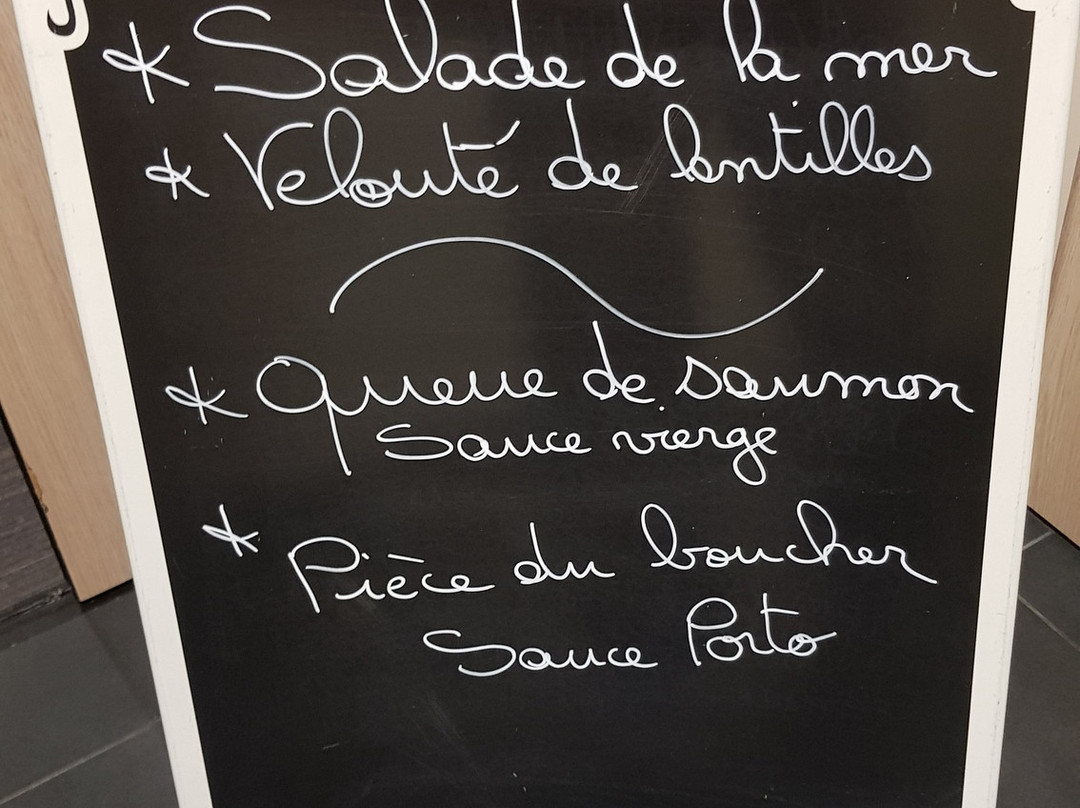 * Salade de la mer
* Velouté de lentilles
* Queue de saumon
Sauce vierge
* Pièce du boucher
Sauce Porto